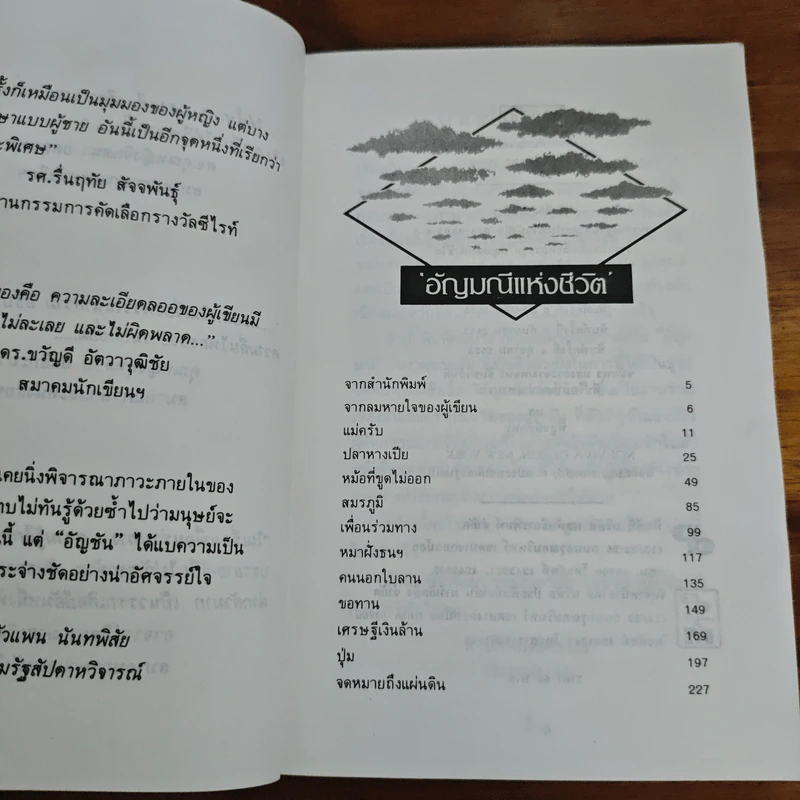 รั้งก็เหมือนเป็นมุมมองของผู้หญิง แต่บาง
ษาแบบผู้ชาย อันนี้เป็นอีกจุดหนึ่งที่เรียกว่า
ะพิเศษ”
รศ.รื่นฤทัย สัจจพันธุ์
านกรรมการคัดเลือกรางวัลซีไรท์
องคือ ความละเอียดลออของผู้เขียนมี
ไม่ละเลย และไม่ผิดพลาด...”
ดร.ขวัญดี อัตวาวุฒิชัย
สมาคมนักเขียนฯ
เคยนิ่งพิจารณาภาวะภายในของ
าบไม่ทันรู้ด้วยซ้ำไปว่ามนุษย์จะ
นี้ แต่ “อัญชัน” ได้แบความเป็น
ระจ่างชัดอย่างน่าอัศจรรย์ใจ
ัวแพน นันทพิสัย
มรัฐสัปดาหวิจารณ์
‘อัญมณีแห่งชีวิต’
จากสำนักพิมพ์ 5
จากลมหายใจของผู้เขียน 6
แม่ครับ 11
ปลาหางเปีย 25
หม้อที่ขูดไม่ออก 49
สมรภูมิ 85
เพื่อนร่วมทาง 99
หมาฝั่งธนฯ 117
คนนอกใบลาน 135
ขอทาน 149
เศรษฐีเงินล้าน 169
ปุ่ม 197
จดหมายถึงแผ่นดิน 227